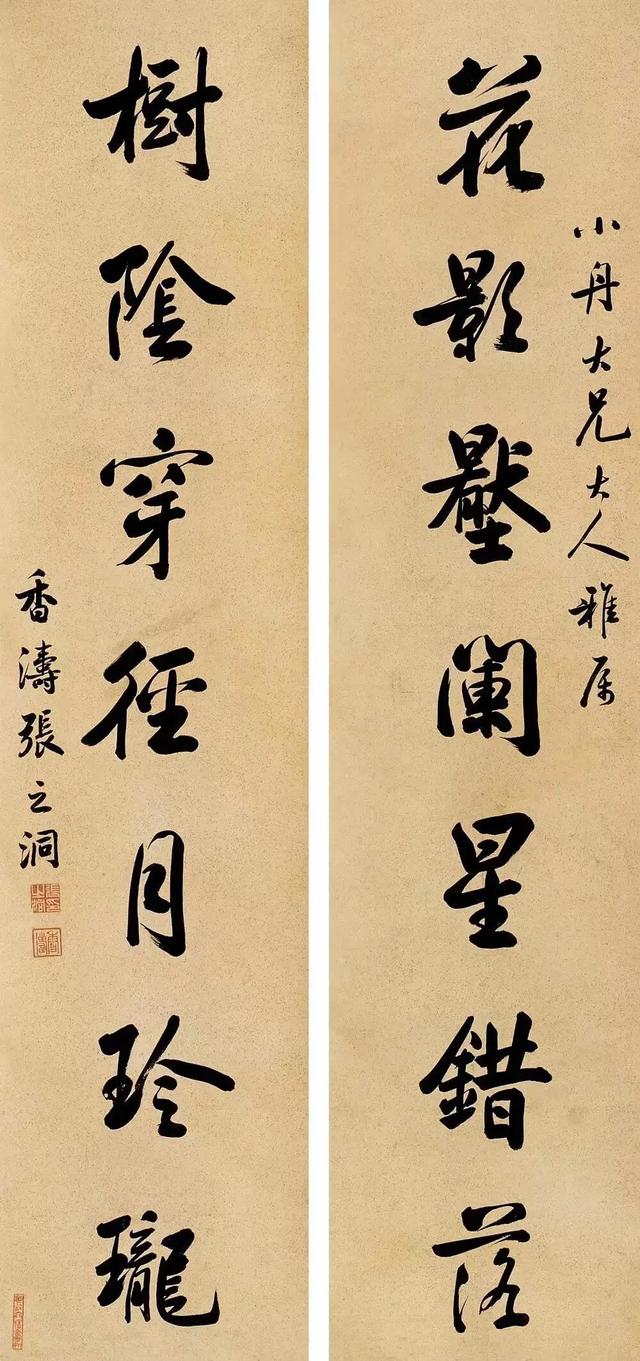 小舟大兄大人雅属
花影壓闌星錯落
樹隂穿徑月玲瓏
香濤張之洞